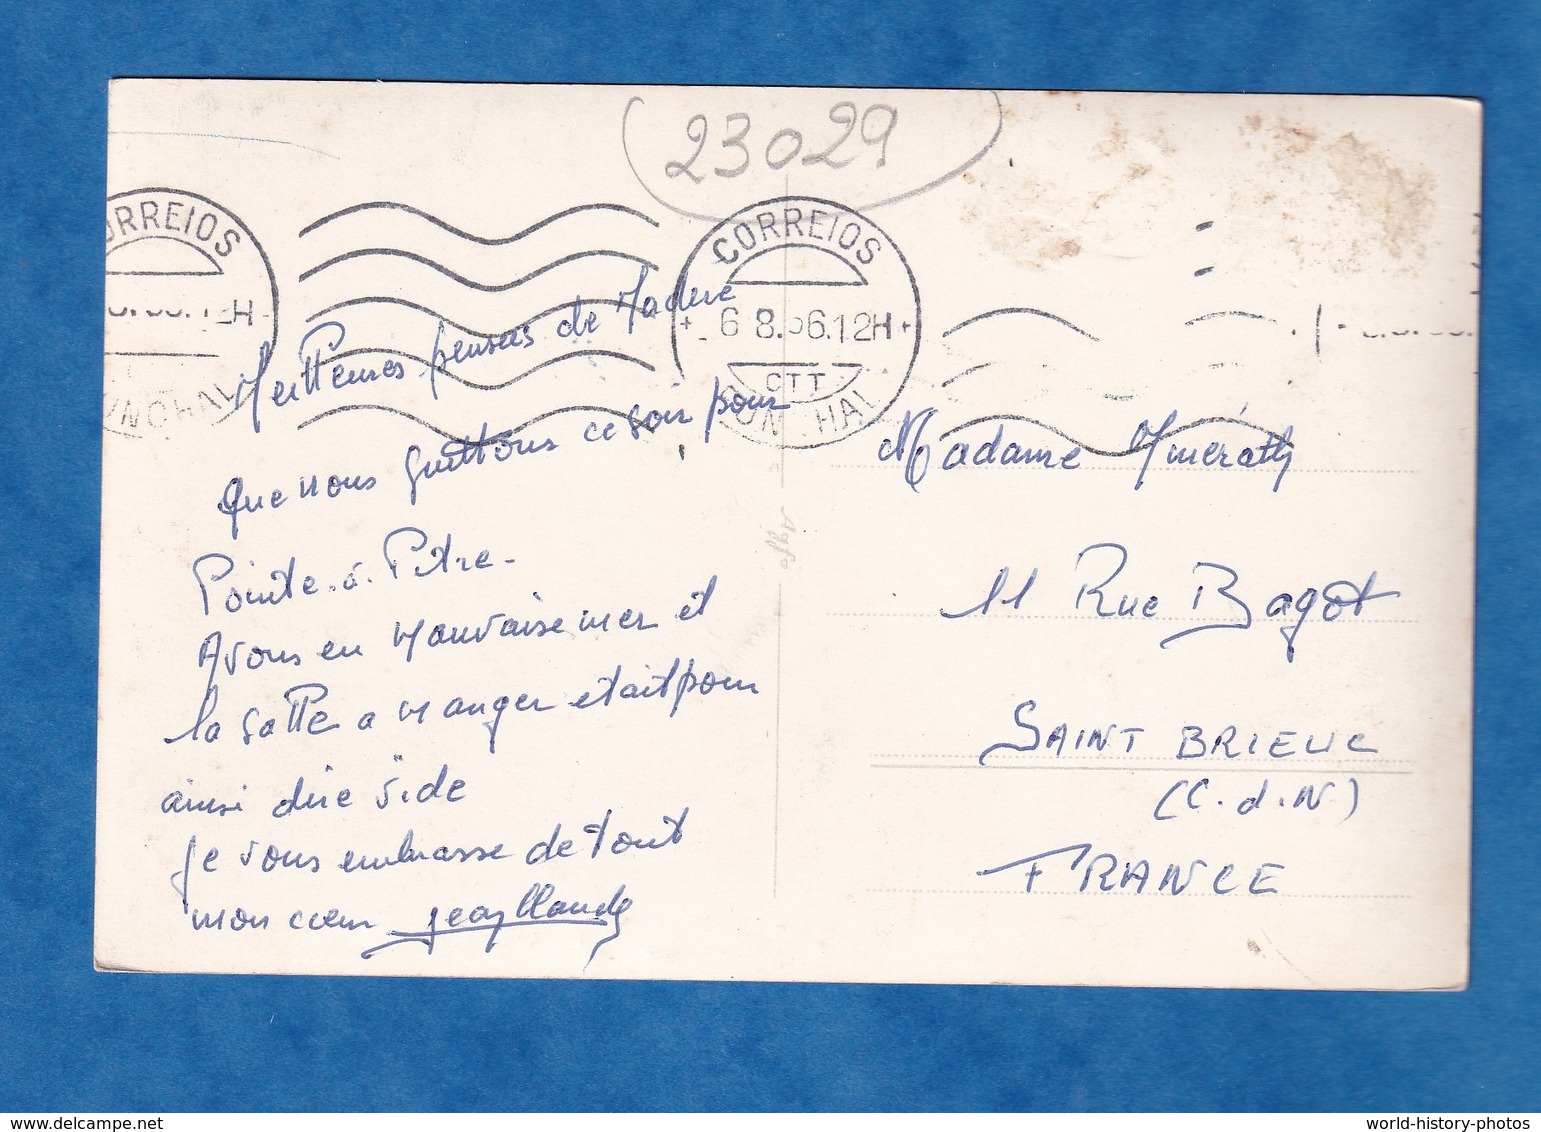 23029
CORREIOS
CORREIOS
6.8.56.12H
CTT
FUNCHAL
Meilleures pensées de Madère
que nous quittons ce soir pour
Pointe-à-Pitre-
Avons eu mauvaise mer et
la salle a manger etait pour
ainsi dire vide
Je vous embrasse de tout
mon cœur
Madame
11 Rue Bagot
SAINT BRIEUC
(C.d.N)
FRANCE
Agfa
world-history-photos